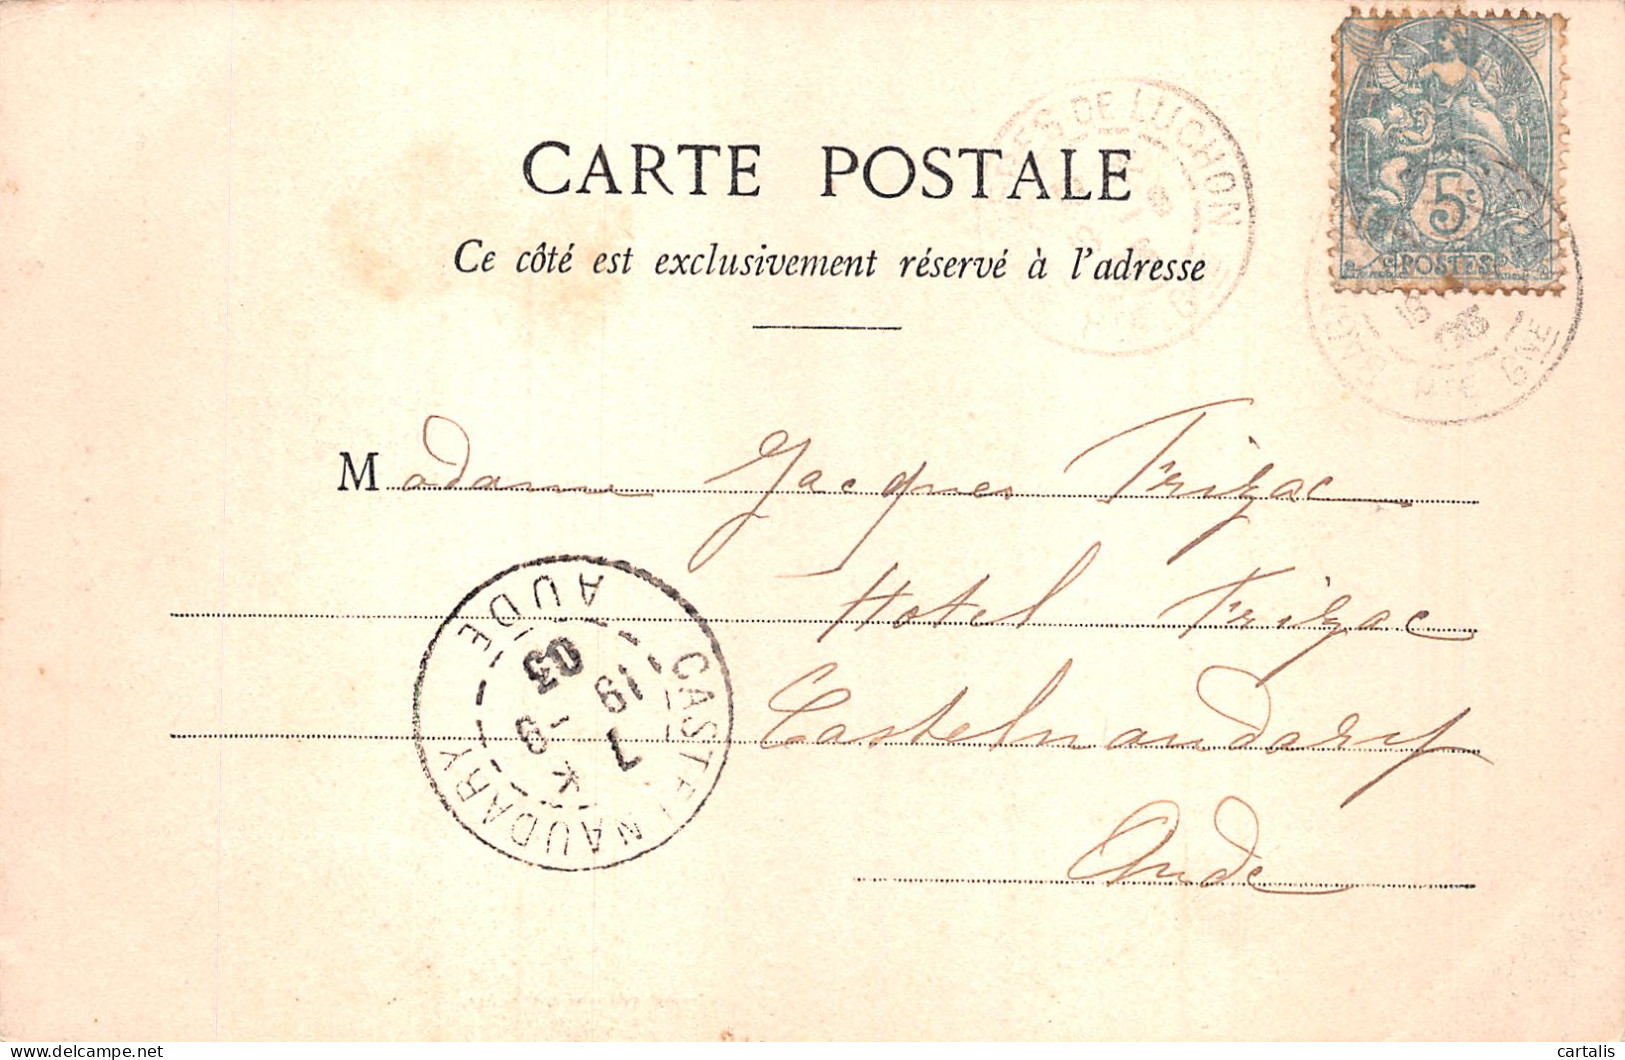 CARTE POSTALE
Ce côté est exclusivement réservé à l'adresse
DE LUCHON
5c
POSTES
Hte Gne
Madame Jacques Trizac
Hotel Trizac
Castelnaudary
Aude
CASTELNAUDARY
AUDE
7 19
9 03
cartalis